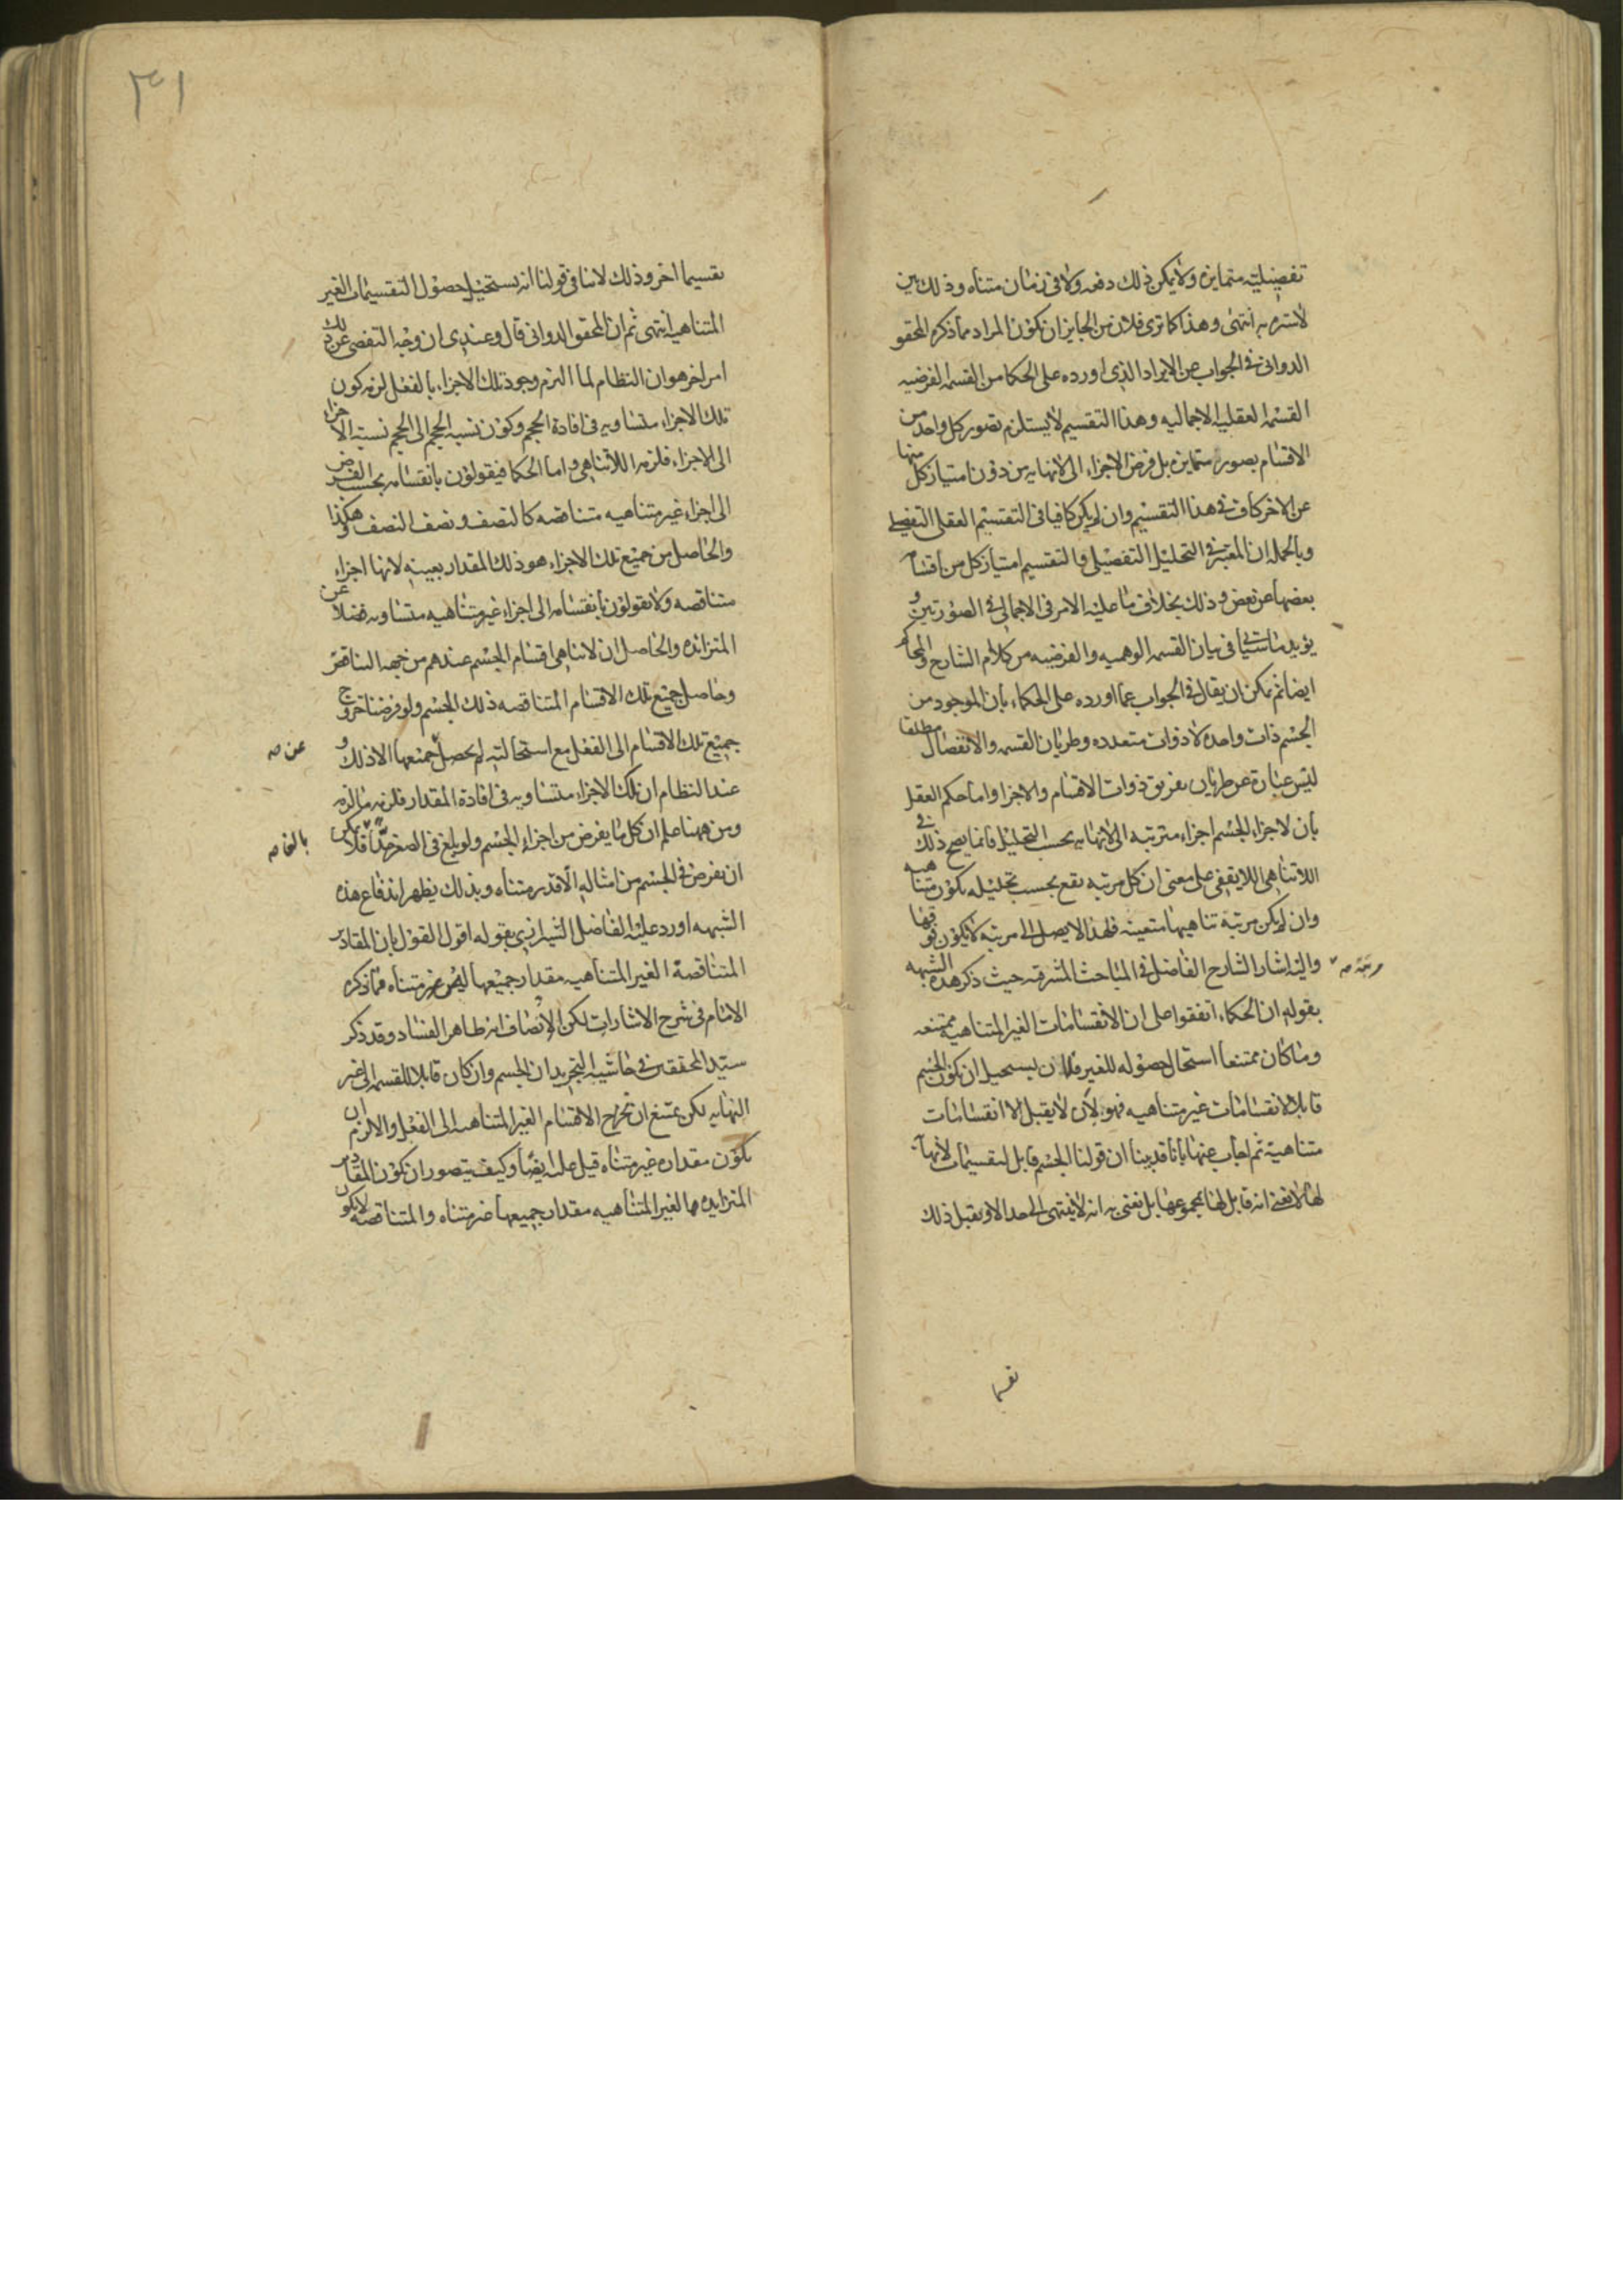 تفصيلية متمايزه ولا يمكن ذلك دفعه ولا فى زمان متناه وذلك بين
لا سترة به انتهى وهذا كما ترى فلان من الجايز ان يكون المراد مما ذكره المحقق
الدوانى فى الجواب عن الايراد الذى اورده على الحكما من القسمه الفرضيه
القسمه العقليه الاجماليه وهذا التقسيم لا يستلزم تصور كل واحد من
الاقسام بصور متمايزه بل فرض الاجزاء الى لا نهايه من دون امتياز كل منها
عن الاخر كاف فى هذا التقسيم وان لم يكن كافيا فى التقسيم العقلى التفصيلى
وبالجمله ان المعتبر فى التحليل التفصيلى والتقسيم امتياز كل من اقسام
بعضها عن بعض وذلك بخلاف ما عليه الامر فى الاجمالى فى الصورتين و
يؤيد ما سيأتى فى بيان القسمه الوهميه والفرضيه من كلام الشارح والمحاكم
ايضا ثم يمكن ان يقال فى الجواب عما اورده على الحكماء بان الموجود من
الجسم ذات واحده لا ذوات متعدده وطريان القسمه والانفصال مطلقا
ليس عبارة عن طريان تفريق ذوات الاقسام والاجزا واما حكم العقل
بان لاجزاء الجسم اجزاء مترتبه الى لا نهايه بحسب التحليل فانما يصح ذلك فى
اللاتناهى اللايقفى على معنى ان كل مرتبه تقع بحسب تحليله يكون متناهيه
وان لم يكن مرتبة تناهيها متعينه فلهذا لا يصل الى مرتبه لا يكون فوقها
واليه اشار الشارح الفاضل فى المباحث المشرقيه حيث ذكر هذه الشبهه
مرتبة صه
بقوله ان الحكماء اتفقوا على ان الانقسامات الغير المتناهيه ممتنعه
وما كان ممتنعا استحال حصوله للغير فلان يستحيل ان يكون الجسم
قابلا لانقسامات غير متناهيه فهو لان لا يقبل الا انقسامات
متناهية ثم اجاب عنها بانا قد بينا ان قولنا الجسم قابل لتقسيمات لا نهاية
لها لا نعنى انه قابل لها بمجموعها بل نعنى به انه لا ينتهى الى حد الا ويقبل ذلك
تقسيما
٣١
تقسيما اخر وذلك لا ينافى قولنا انه يستحيل حصول التقسيمات الغير
المتناهيه انتهى ثم ان المحقق الدوانى قال وعندى ان وجه التفصى عن ذلك
امر اخر هو ان النظام لما التزم وجود تلك الاجزاء بالفعل لزمه كون
تلك الاجزاء متساويه فى افادة الحجم وكون نسبه الحجم الى الحجم نسبته الاجزاء
الى الاجزاء فلزمه اللاتناهى واما الحكما فيقولون بانقسامه بحسب الفرض
الى اجزاء غير متناهيه متناقصه كالنصف ونصف النصف وهكذا
والحاصل من جميع تلك الاجزاء هو ذلك المقدار بعينه لانها اجزاء
متناقصه ولا يقولون بانقسامه الى اجزاء غير متناهيه متساويه فضلا عن
المتزائده والحاصل ان لا تناهى اقسام الجسم عندهم من جهه التناقص
وحاصل جميع تلك الاقسام المتناقصه ذلك الجسم ولو فرضنا خروج
جميع تلك الاقسام الى الفعل مع استحالته لم يحصل جميعها الا ذلك و
عن صه
عند النظام ان تلك الاجزاء متساويه فى افادة المقدار فلزمه ما لزمه
ومن ههنا علم ان كل ما يفرض من اجزاء الجسم ولو بلغ فى الصغر حدا فلا يمكن
بالغا صه
ان يفرض فى الجسم من امثاله الا قدر متناه وبذلك يظهر اندفاع هذه
الشبهه اورد عليه الفاضل الشيرازى بقوله اقول القول بان المقادير
المتناقصة الغير المتناهيه مقدار جميعها ليس غير متناه مما ذكره
الامام فى شرح الاشارات لكن الانصاف انه ظاهر الفساد وقد ذكر
سيد المحققين فى حاشيه التجريد ان الجسم وان كان قابلا للقسمه الى غير
النهايه لكن يمتنع ان تخرج الاقسام الغير المتناهيه الى الفعل والا لزم ان
يكون مقداره غير متناه قيل عليه ايضا وكيف يتصور ان يكون المقادير
المتزايده الغير المتناهيه مقدار جميعها غير متناه والمتناقصه لا يكون